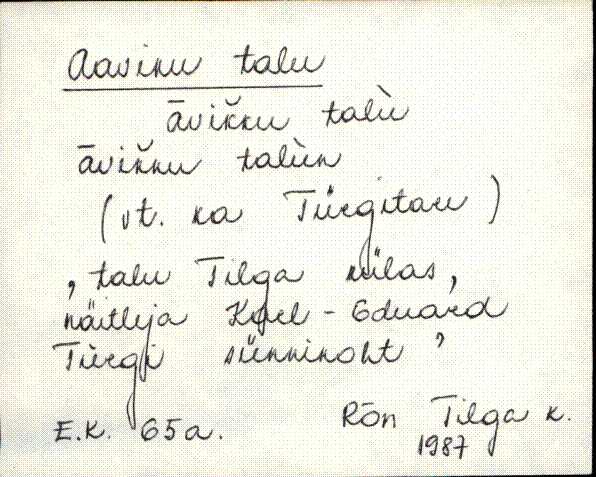 Aaviku talu
āvik̆ku talù
āvik̆ku talùn
(vt. ka Türgitare)
, talu Tilga külas,
näitleja Karl-Eduard
Türgi sünnikoht '
E.K. 65a.
Rõn Tilga k.
1987